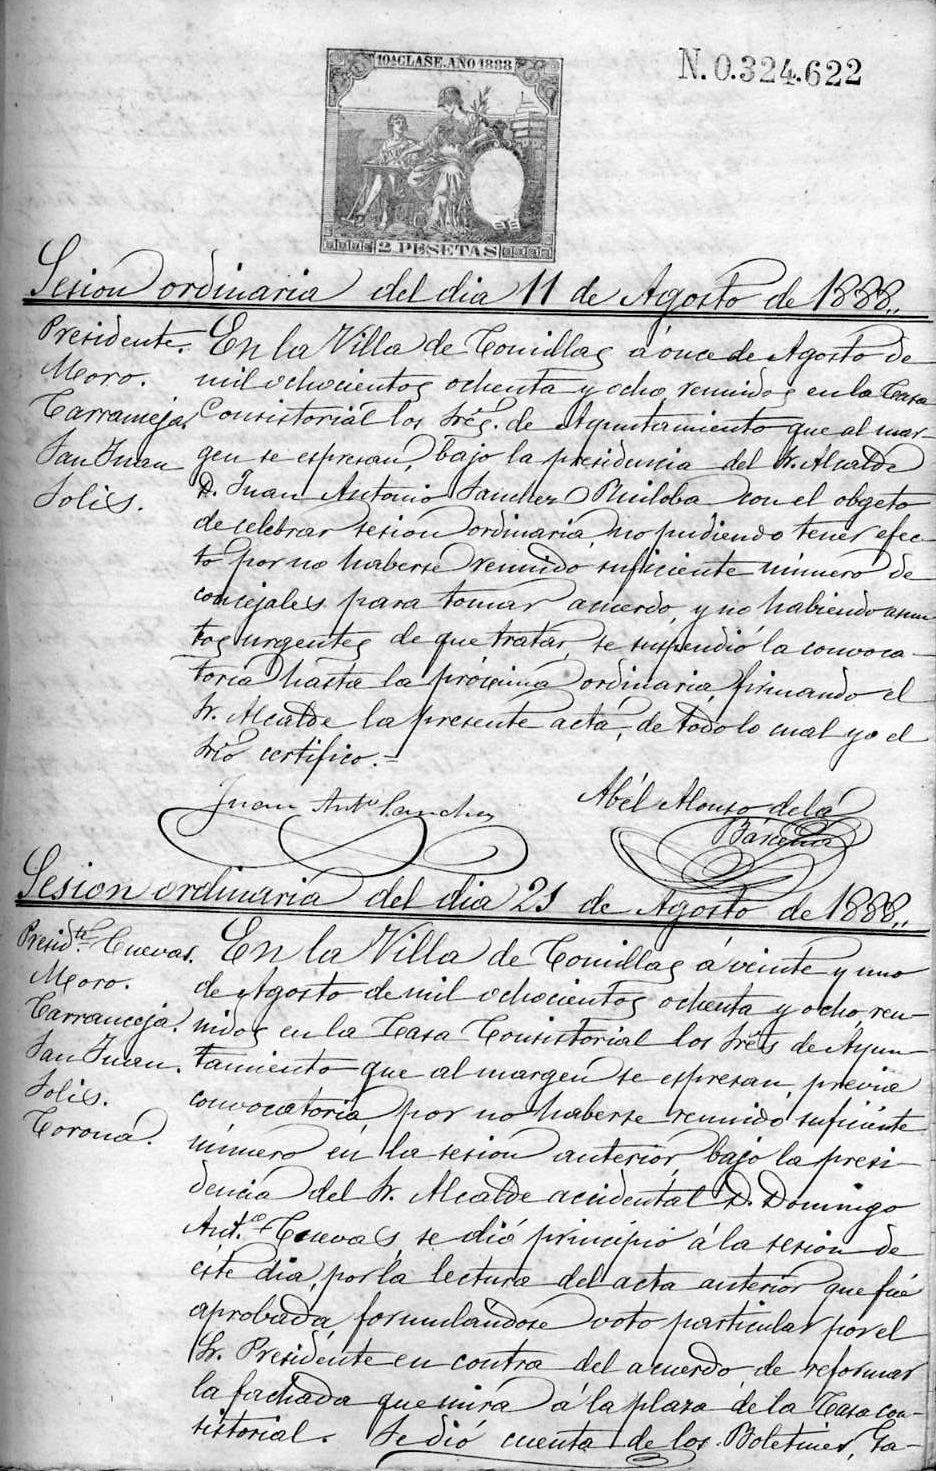 10ª CLASE. AÑO 1888
N. 0.324.622
2 PESETAS
Sesion ordinaria del dia 11 de Agosto de 1888.,
Presidente.
Moro.
Tarranceja.
San Juan
Solis.
En la Villa de Comillas á once de Agosto de
mil ochocientos ochenta y ocho, reunidos en la Casa
Consistorial los Sres. de Ayuntamiento que al mar-
gen se espresan, bajo la presidencia del Sr. Alcalde
D. Juan Antonio Sanchez Ruiloba con el obgeto
de celebrar sesion ordinaria, no pudiendo tener efec-
to por no haberse reunido suficiente número de
concejales para tomar acuerdo, y no habiendo asun-
tos urgentes de que tratar, se suspendió la convoca-
toria hasta la próxima ordinaria, firmando el
Sr. Alcalde la presente acta, de todo lo cual yo el
Srio certifico.=
Juan Anto Sanchez
Abél Alonso de la
Bárcena
Sesion ordinaria del dia 21 de Agosto de 1888.,
Presidte Cuevas.
Moro.
Tarranceja.
San Juan.
Solis.
Corona.
En la Villa de Comillas á veinte y uno
de Agosto de mil ochocientos ochenta y ocho, reu-
nidos en la Casa Consistorial los Sres de Ayun-
tamiento que al margen se espresan, previa
convocatoria, por no haberse reunido suficiente
número en la sesion anterior, bajo la presi-
dencia del Sr. Alcalde accidental D. Domingo
Ant.o Cuevas, se dió principio á la sesion de
éste dia, por la lectura del acta anterior que fué
aprobada, formulándose voto particular por el
Sr. Presidente en contra del acuerdo de reformar
la fachada que mira á la plaza de la Casa con-
sistorial. Se dió cuenta de los Boletines, Ga-